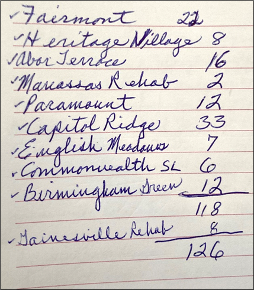 ✓Fairmont 22
✓Heritage Village 8
✓Abor Terrace 16
✓Manassas Rehab 2
✓Paramount 12
✓Capitol Ridge 33
✓English Meadows 7
✓Commonwealth SL 6
✓Birmingham Green 12
118
✓Gainesville Rehab 8
126